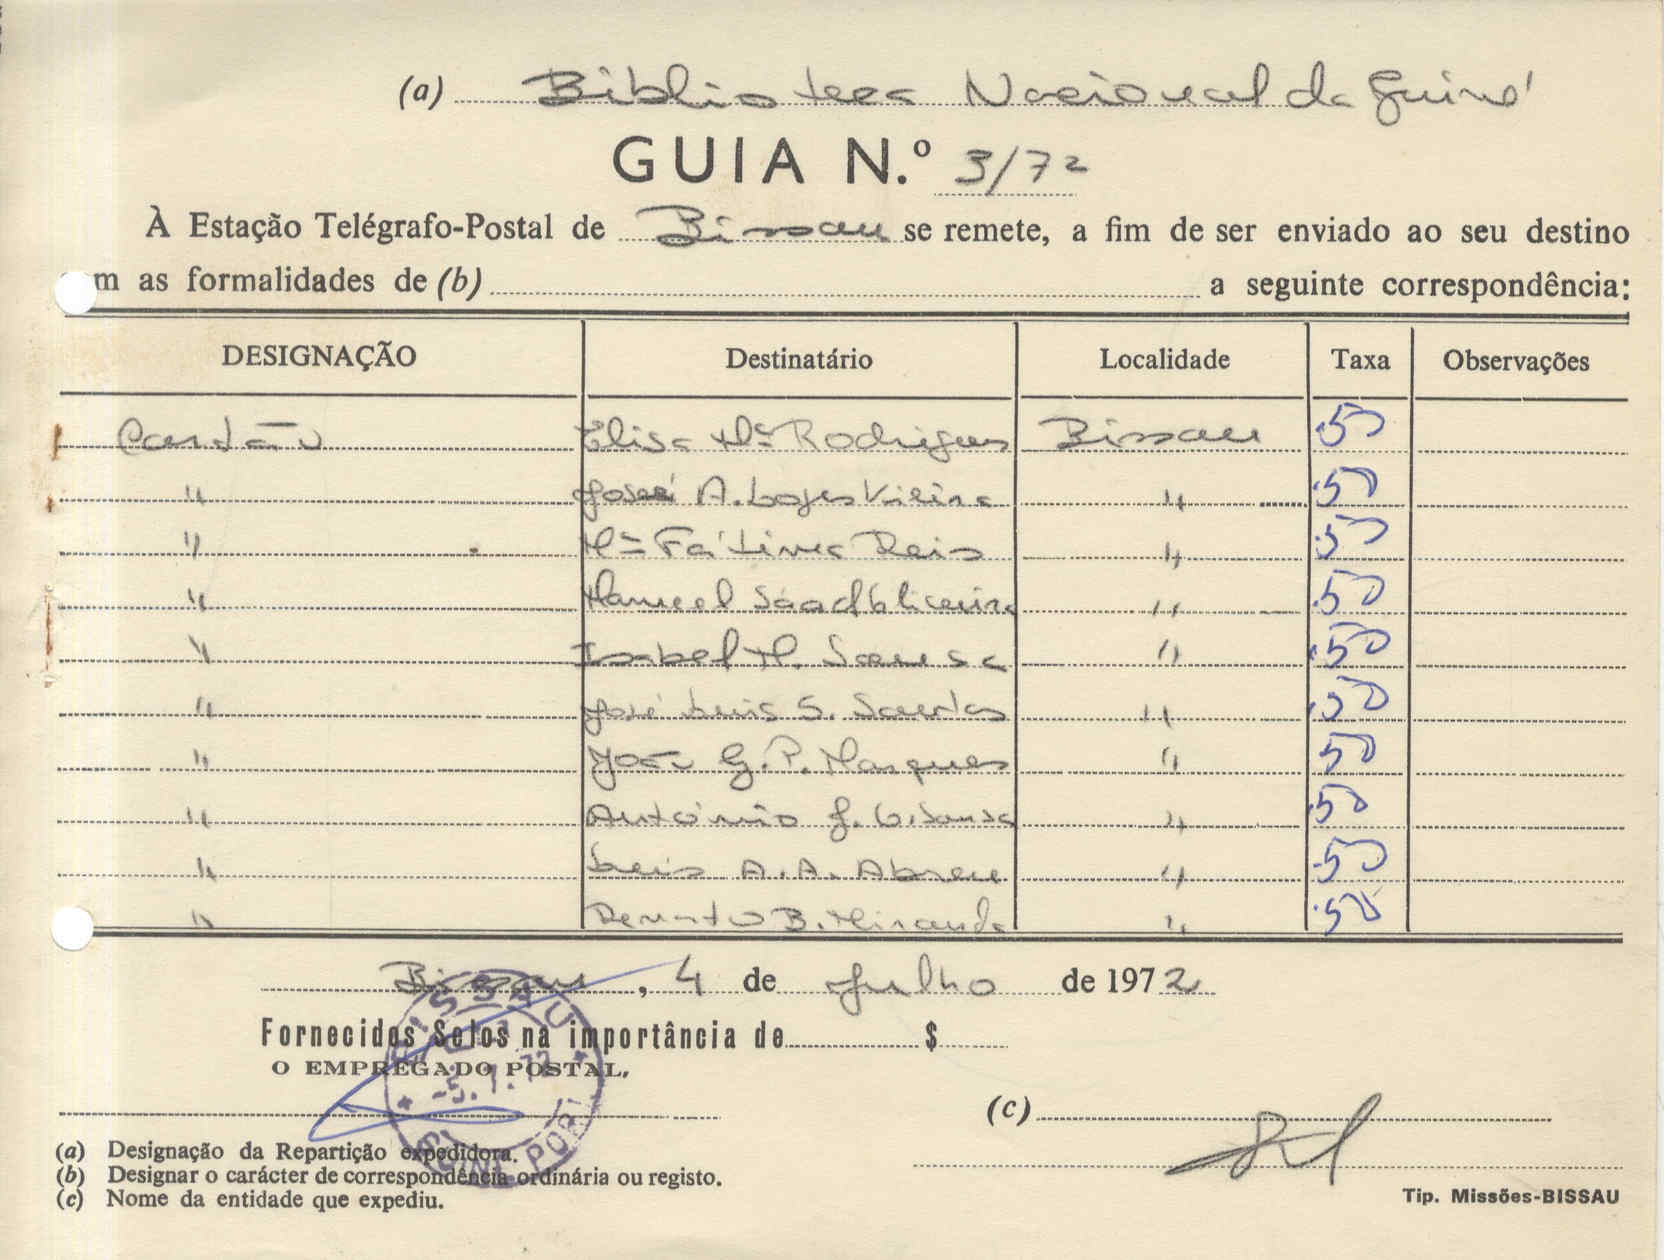 (a) Biblioteca Nacional da Guiné
GUIA N.º 3/72
À Estação Telégrafo-Postal de Bissau se remete, a fim de ser enviado ao seu destino
m as formalidades de (b) a seguinte correspondência:
DESIGNAÇÃO Destinatário Localidade Taxa Observações
Cartão Elisa Mª Rodrigues Bissau $50
" José A. Lopes Vieira " $50
" Mª Fátima Reis " $50
" Manuel Saad " $50
" Isabel M. Sousa " $50
" José Luis S. Santos " $50
" João G. P. Marques " $50
" António J. G. Sousa " $50
" Luis A. A. Abreu " $50
" Renato B. Miranda " $50
Bissau, 4 de Julho de 1972
Fornecidos Selos na importância de $
O EMPREGADO POSTAL,
BISSAU
-5. 7. 72
GUINÉ PORT.
(c)
(a) Designação da Repartição expedidora.
(b) Designar o carácter de correspondência ordinária ou registo.
(c) Nome da entidade que expediu.
Tip. Missões-BISSAU